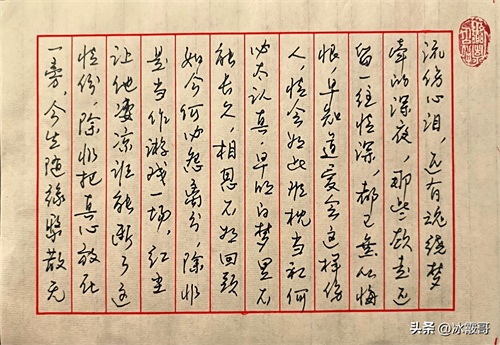 流伤心泪，还有魂绕梦
牵的深夜，那些欲走还
留一往情深，都已无从悔
恨，早知道爱会这样伤
人，情会如此难枕当初何
必太认真，早明白梦里不
能长久，相思不如回头
如今何必怨离分，除非
是当作游戏一场，红尘
让他凄凉谁能断了这
情份，除非把真心放在
一旁，今生随缘聚散无
头条 @冰哥